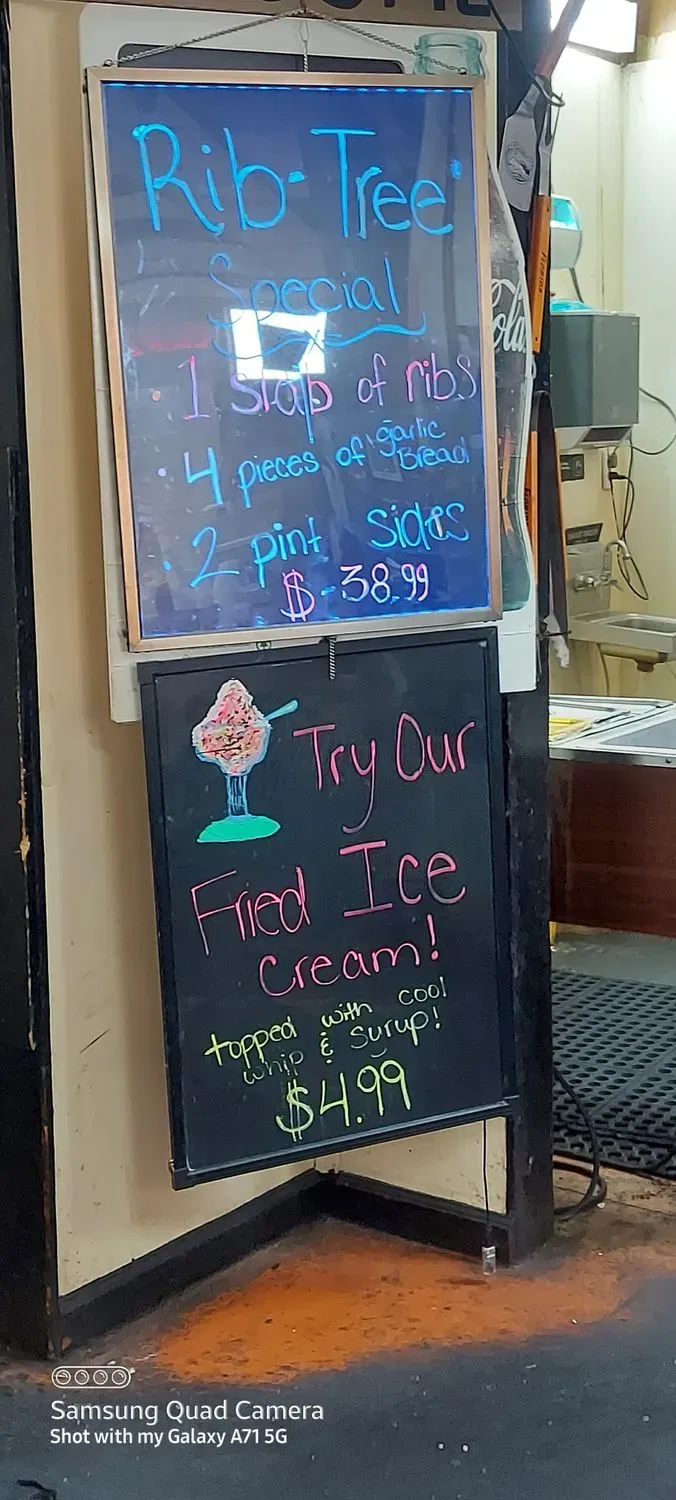 Rib-Tree
Special
• 1 slab of ribs
• 4 pieces of garlic
Bread
• 2 pint sides
$ -38.99
Cola
Try Our
Fried Ice
Cream!
topped with cool
whip & Syrup!
$4.99
Samsung Quad Camera
Shot with my Galaxy A71 5G